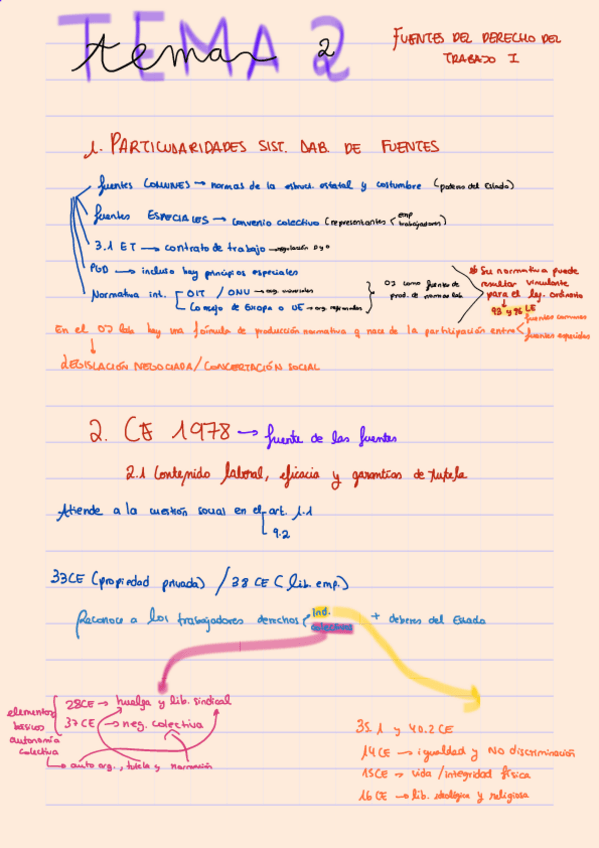 TEMA 2
tema 2
FUENTES DEL DERECHO DEL
TRABAJO I
1. PARTICULARIDADES SIST. LAB. DE FUENTES
fuentes COMUNES → normas de la estruct. estatal y costumbre (poderes del Estado)
fuentes ESPECIALES → convenio colectivo (representantes < emp
trabajadores)
3.1 ET → contrato de trabajo → regulación D y O
PGD → incluso hay principios especiales
Normativa int. OIT / ONU → org. universales
Consejo de Europa o UE → org. regionales
OJ como fuente de
prod. de normas lab
* Su normativa puede
resultar vinculante
para el leg. ordinario
93 y 96 CE
En el OJ lab hay una fórmula de producción normativa q nace de la participación entre
fuentes comunes
fuentes especiales
LEGISLACIÓN NEGOCIADA / CONCERTACIÓN SOCIAL
2. CE 1978 → fuente de las fuentes
2.1 Contenido laboral, eficacia y garantías de tutela
Atiende a la cuestión social en el art. 1.1
9.2
33CE (propiedad privada) / 38 CE (lib. emp.)
Reconoce a los trabajadores derechos ind.
colectivos
+ deberes del Estado
elementos
básicos
autonomía
colectiva
28CE → huelga y lib. sindical
37 CE → neg. colectiva
→ auto org., tutela y normación
35.1 y 40.2 CE
14CE → igualdad y NO discriminación
15CE → vida / integridad física
16 CE → lib. ideológica y religiosa